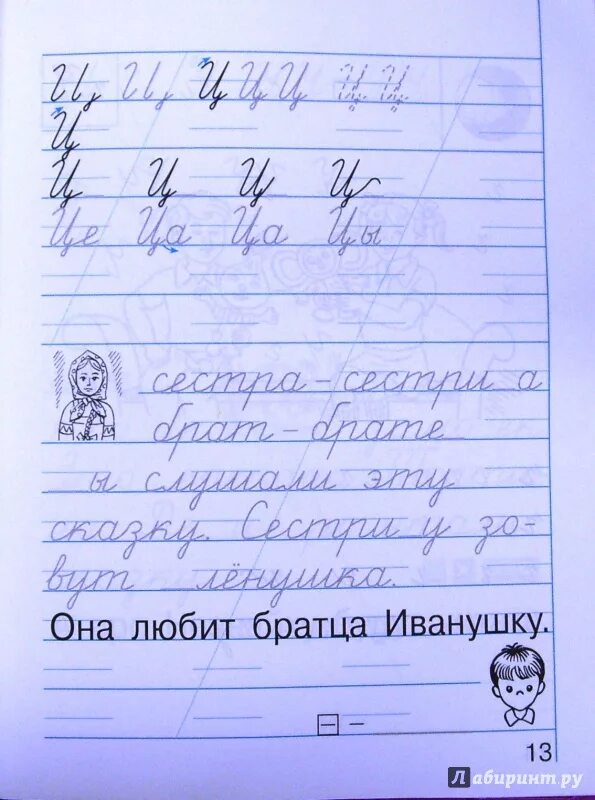 Ц Ц Ц Ц Ц Ц Ц
Ц
Ц Ц Ц Ц
Це Ца Ца Цы
сестра – сестри а
брат – брате
ы слушали эту
сказку. Сестри у зо-
вут лёнушка.
Она любит братца Иванушку.
–
13
Лабиринт.ру